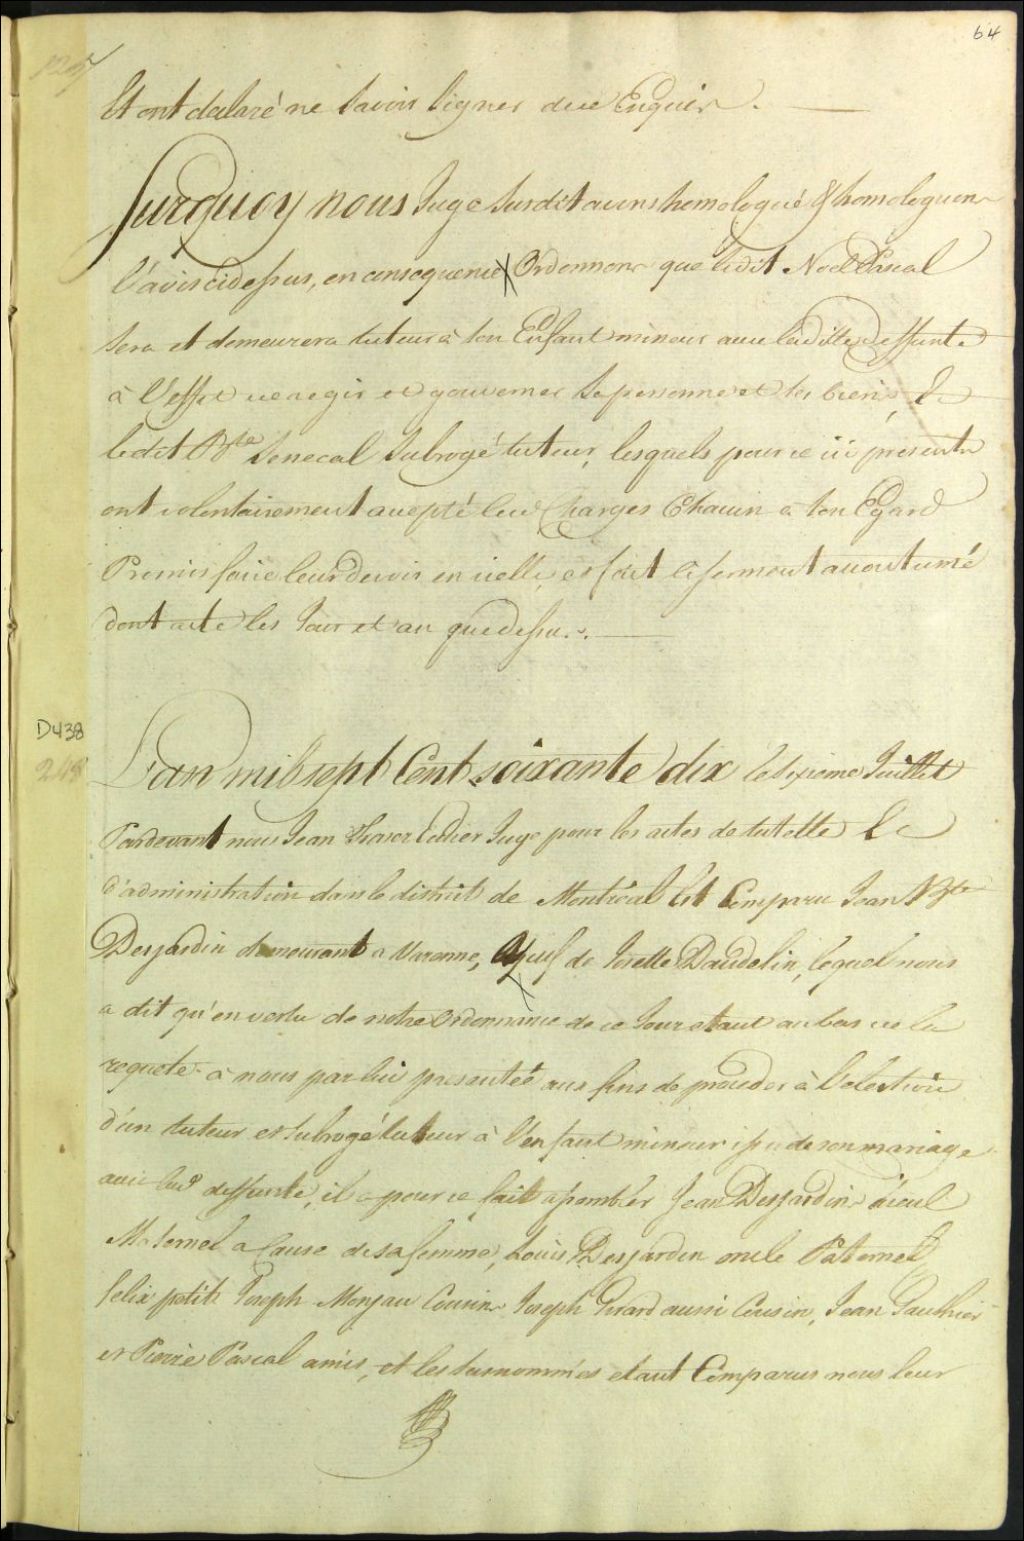 64
Et ont declaré ne savoir signer de ce Enquis.
Surquoy nous Juge susdit avons homologué & homologuons
l'avis cidessus, en consequence Ordonnons que ledit Noel Pascal
sera et demeurera tuteur à son Enfant mineur avec laditte deffunte
à l'effet de regir et gouverner sa personne et ses biens, &
ledit Bte Senecal Subrogé tuteur, lesquels pour ce ici presents
ont volontairement accepté lesd Charges Chacun a son Egard
Promis faire leur devoir en icelle, et fait le serment accoutumé
dont acte les Jour et an que dessus.
D438
248
L'an mil sept Cent soixante dix le sixieme Juillet
Pardevant nous Jean Fraser Ecuier Juge pour les actes de tutelle &c
d'administration dans le district de Montréal Est Comparu Jean Bte
Desjardin demeurant a Varenne, Veuf de Josette Daudelin, lequel nous
a dit qu'en vertu de notre Ordonnance de ce Jour etant au bas de la
requete à nous par lui presentée aux fins de proceder à l'election
d'un tuteur et subrogé tuteur à l'enfant mineur issu de son mariage
avec lad deffunte, il a pour ce fait assembler Jean Desjardin aieul
Maternel a Cause de sa femme, Louis Desjardin oncle Paternel,
felix petit Joseph Monjau Cousins Joseph Girard aussi Cousin, Jean Gauthier
et Pierre Pascal amis, et les susnommés etant Comparus nous leur